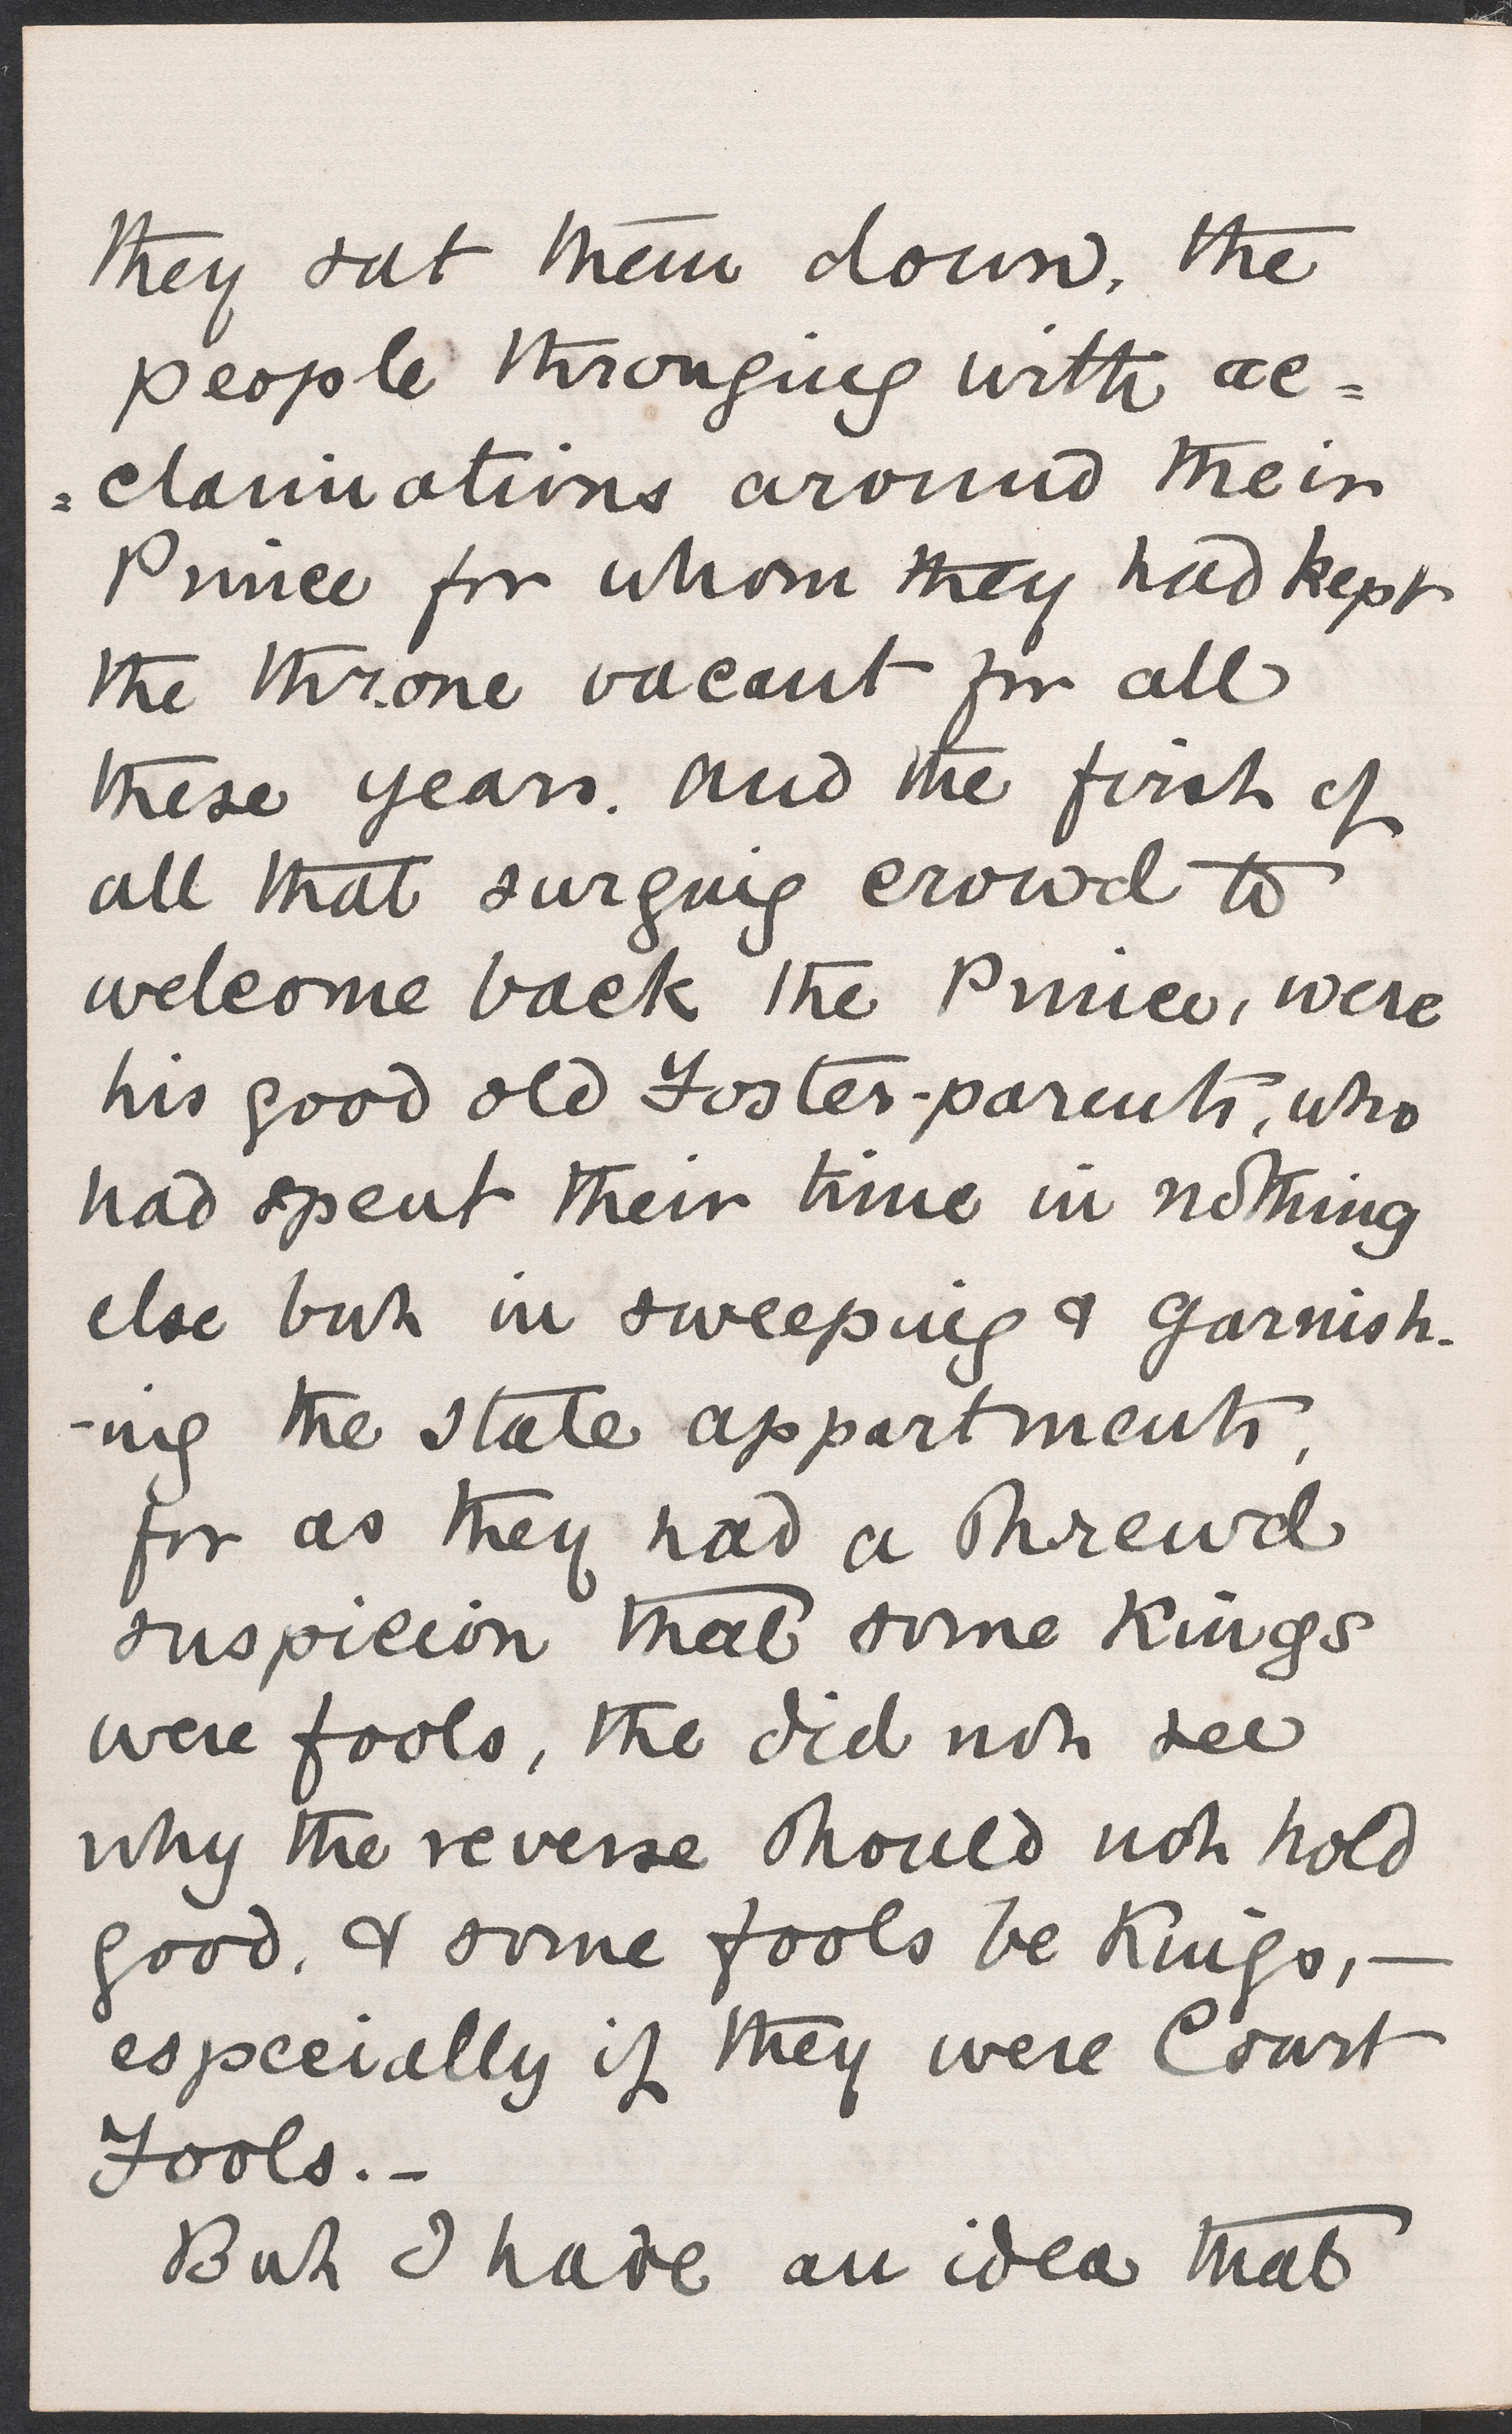 they sat them down, the
people thronging with ac=
=clamations around their
Prince for whom they had kept
the throne vacant for all
these years. And the first of
all that surging crowd to
welcome back the Prince, were
his good old Foster-parents, who
had spent their time in nothing
else but in sweeping & garnish-
-ing the state appartments,
for as they had a shrewd
suspicion that some Kings
were fools, the did not see
why the reverse should not hold
good, & some fools be Kings, —
especially if they were Court
Fools. -
But I have an idea that